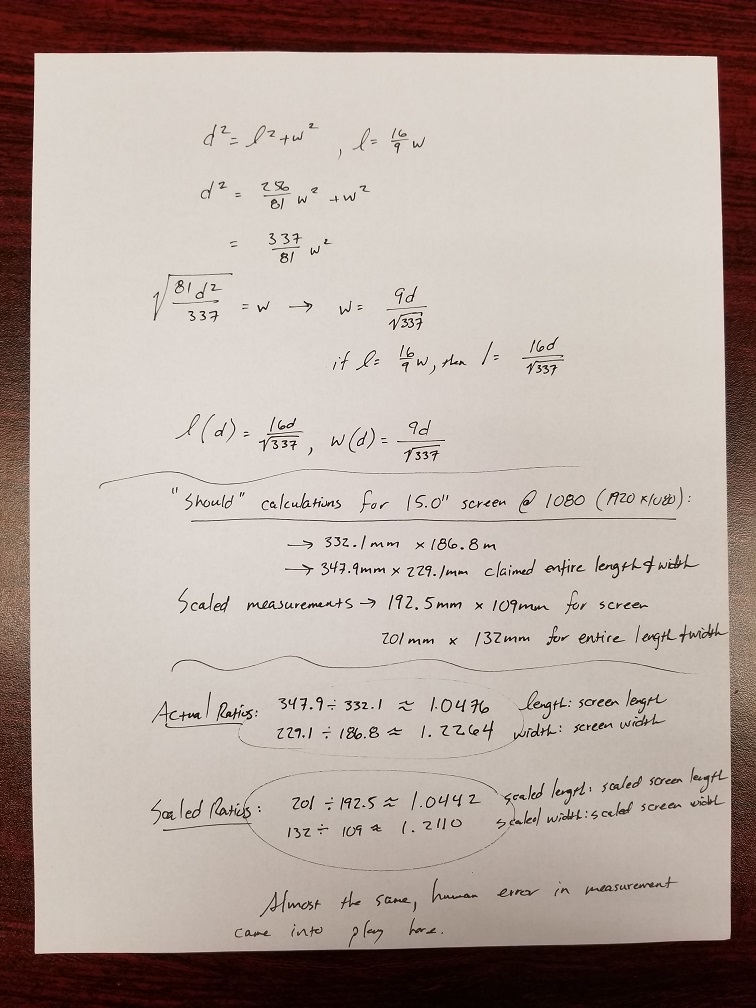 d² = l² + w² , l = 16/9 w
d² = 256/81 w² + w²
= 337/81 w²
√(81d²/337) = w → w = 9d/√337
if l = 16/9 w, then l = 16d/√337
l(d) = 16d/√337, w(d) = 9d/√337
"Should" calculations for 15.0" screen @ 1080 (1920 x 1080):
→ 332.1mm × 186.8m
→ 347.9mm × 229.1mm claimed entire length & width
Scaled measurements → 192.5mm × 109mm for screen
201mm × 132mm for entire length & width
Actual Ratios: 347.9 ÷ 332.1 ≈ 1.0476 length: screen length
229.1 ÷ 186.8 ≈ 1.2264 width: screen width
Scaled Ratios: 201 ÷ 192.5 ≈ 1.0442 scaled length: scaled screen length
132 ÷ 109 ≈ 1.2110 scaled width: scaled screen width
Almost the same, human error in measurement
came into play here.